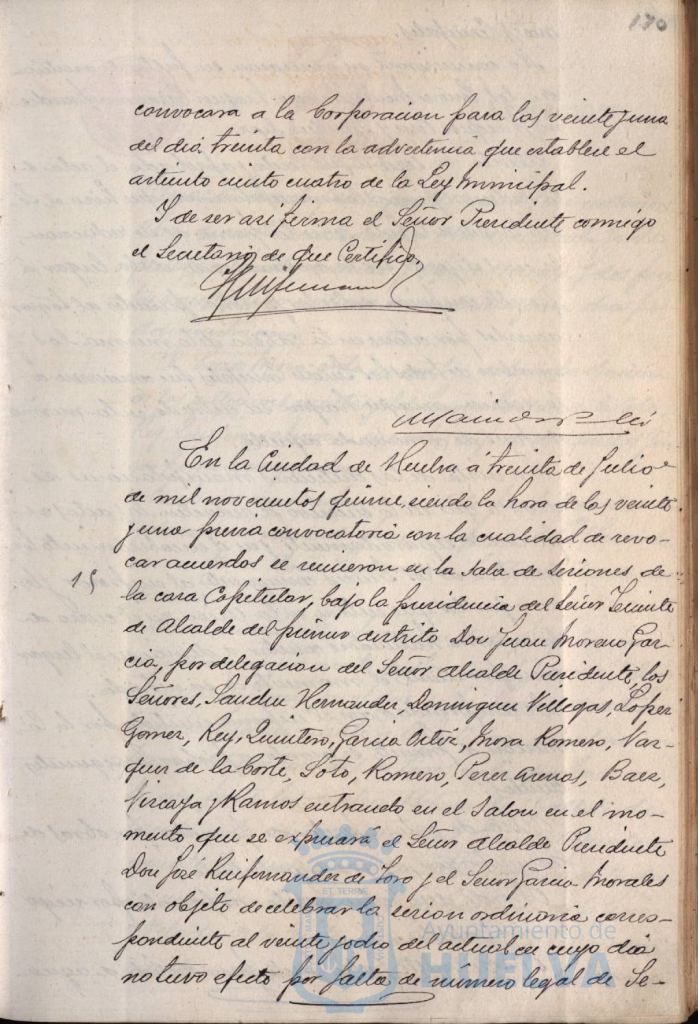 170
convocara a la Corporacion para las veinte y una
del dia treinta con la advertencia que establece el
articulo ciento cuatro de la Ley Municipal.
Y de ser asi firma el Señor Presidente conmigo
el Secretario de que Certifico.
En la Ciudad de Huelva á treinta de Julio
de mil novecientos quince, siendo la hora de las veinte
y una previa convocatoria con la cualidad de revo-
car acuerdos se reunieron en la sala de sesiones de
15
la casa Capitular, bajo la presidencia del Señor Teniente
de Alcalde del primer distrito Don Juan Moreno Gar-
cia, por delegacion del Señor Alcalde Presidente, los
Señores, Sanchez Hernandez, Dominguez Villegas, Lopez
Gomez, Rey, Quintero, Garcia Ortiz, Mora Romero, Vaz-
quez de la Corte, Soto, Romero, Perez Arenas, Baez,
Vizcaya y Ramos entrando en el Salon en el mo-
mento que se expresará el Señor Alcalde Presidente
Don José Ruifernandez de Toro y el Señor Garcia Morales
con objeto de celebrar la sesion ordinaria corres-
pondiente al veinte y ocho del actual en cuyo dia
no tuvo efecto por falta de número legal de Se-
Ayuntamiento de
HUELVA